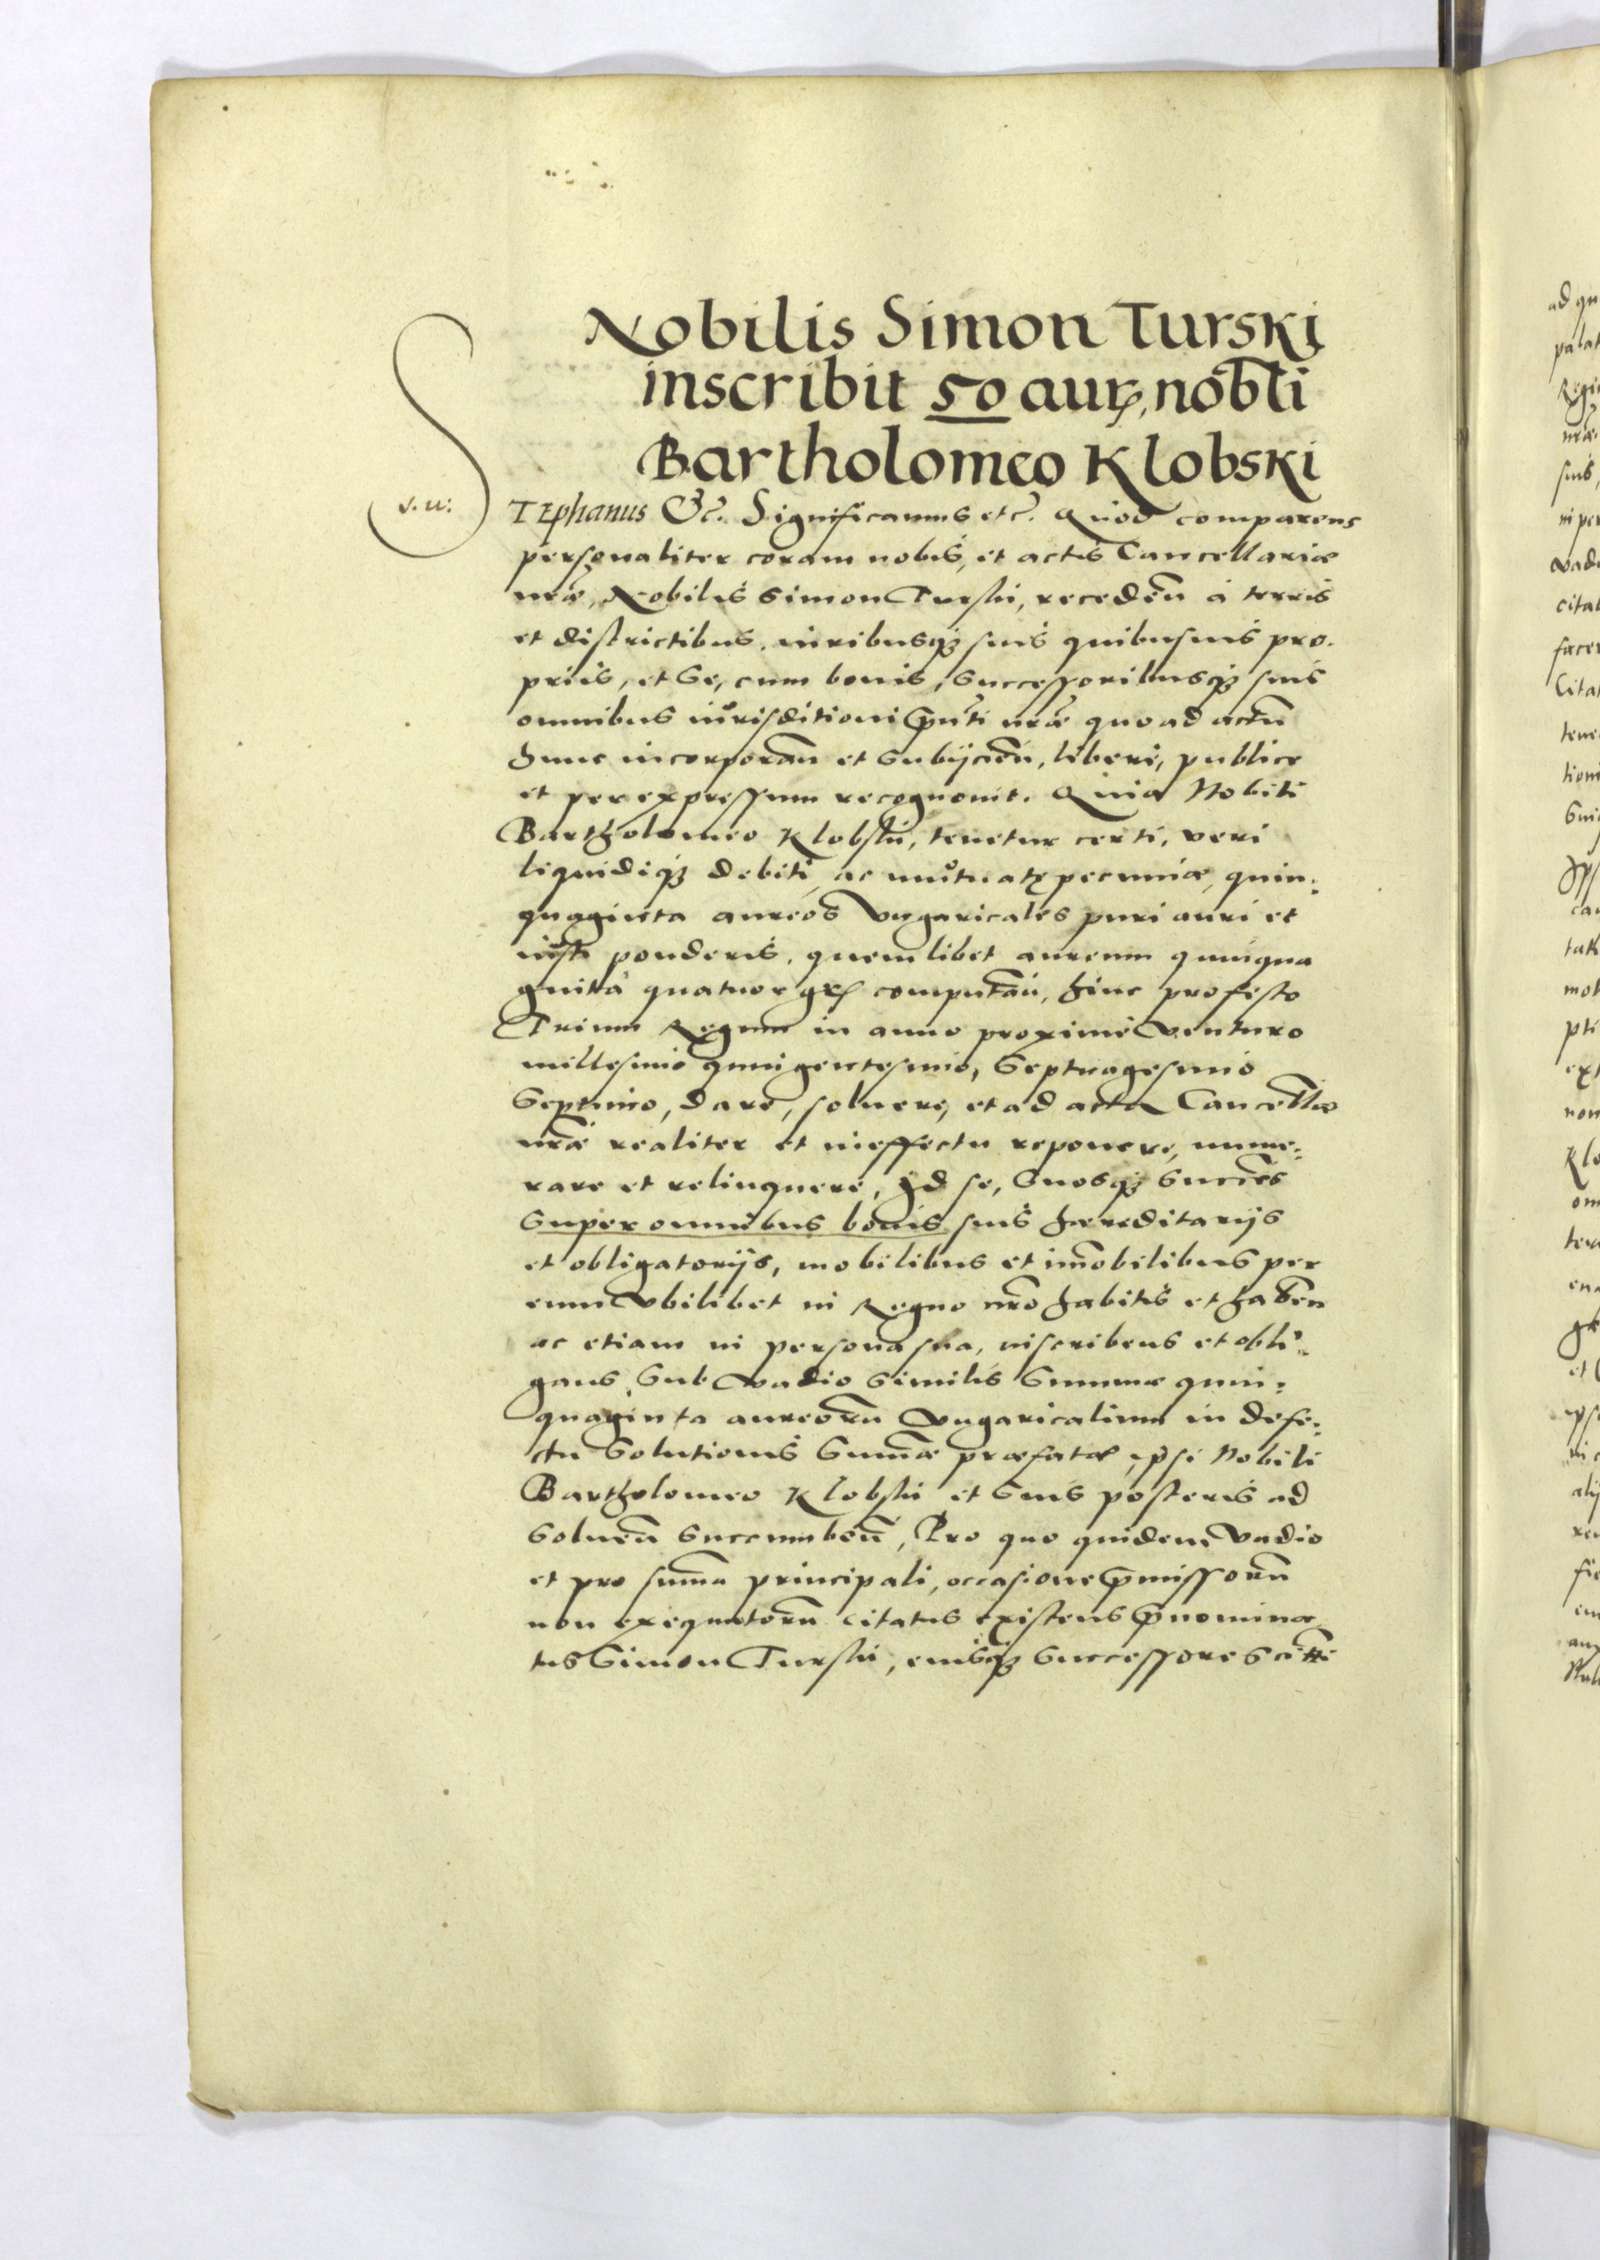 Nobilis Simon Turski
inscribit 50 aur, nobli
Bartholomeo Klobski
STEphanus &c. Significamus etc. Quod comparens
personaliter coram nobis, et actis Cancellariæ
nræ, Nobilis Simon Turski, receden à terris
et districtibus, iuribusq3 suis quibusuis pro-
priis, et se, cum bonis, successoribusq3 suis
omnibus iurisditioni pnti nræ quo ad actum
hunc incorporan et subijcien, libere, publice
et per expressum recognouit. Quia Nobili
Bartholomeo Klobski, tenetur certi, veri
liquidiq3 debiti, ac mutuatę pecuniæ, quin-
quaginta aureos Vngaricales puri auri et
iusti ponderis, quemlibet aureum quinqua
ginta quatuor grs computan, hinc pro festo
Trium Regum in anno proxime Venturo
millesimo quingentesimo, Septuagesimo
Septimo, dare, soluere, et ad acta Cancellæ
nræ realiter et in effectu reponere, nume-
rare et relinquere, Id se, suosq3 succres
super omnibus bonis suis hæreditarijs
et obligatorijs, mobilibus et imobilibus per
eum Vbilibet in Regno nro habitis et haben
ac etiam in persona sua, inscribens et obli-
gans, sub Vadio similis summæ quin-
quaginta aureorum Vngaricalium in defe-
ctu solutionis sumæ præfatæ, ipsi Nobili
Bartholomeo Klobski et suis posteris ad
soluen succumben, Pro quo quidem Vadio
et pro suma principali, occasione pmissorum
non exequutorum citatus existens pnomina
tus Simon Turski, eiusq3 successores citti